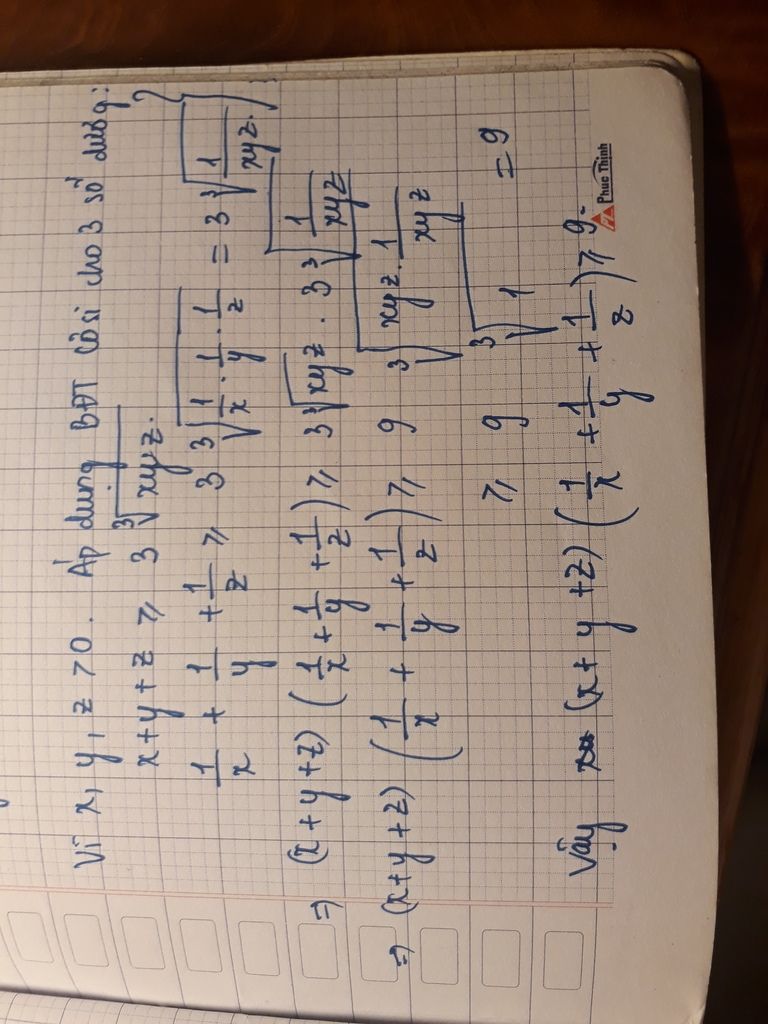 Vì x, y, z > 0. Áp dụng BĐT côsi cho 3 số dương:
x + y + z ≥ 3 ∛(xyz).
1/x + 1/y + 1/z ≥ 3 ∛(1/x · 1/y · 1/z) = 3 ∛(1/xyz)
⇒ (x + y + z) (1/x + 1/y + 1/z) ≥ 3 ∛(xyz) . 3 ∛(1/xyz)
⇒ (x + y + z) (1/x + 1/y + 1/z) ≥ 9 ∛(xyz · 1/xyz)
≥ 9 ∛1 = 9
Vậy (x + y + z) (1/x + 1/y + 1/z) ≥ 9.
Phuc Thinh